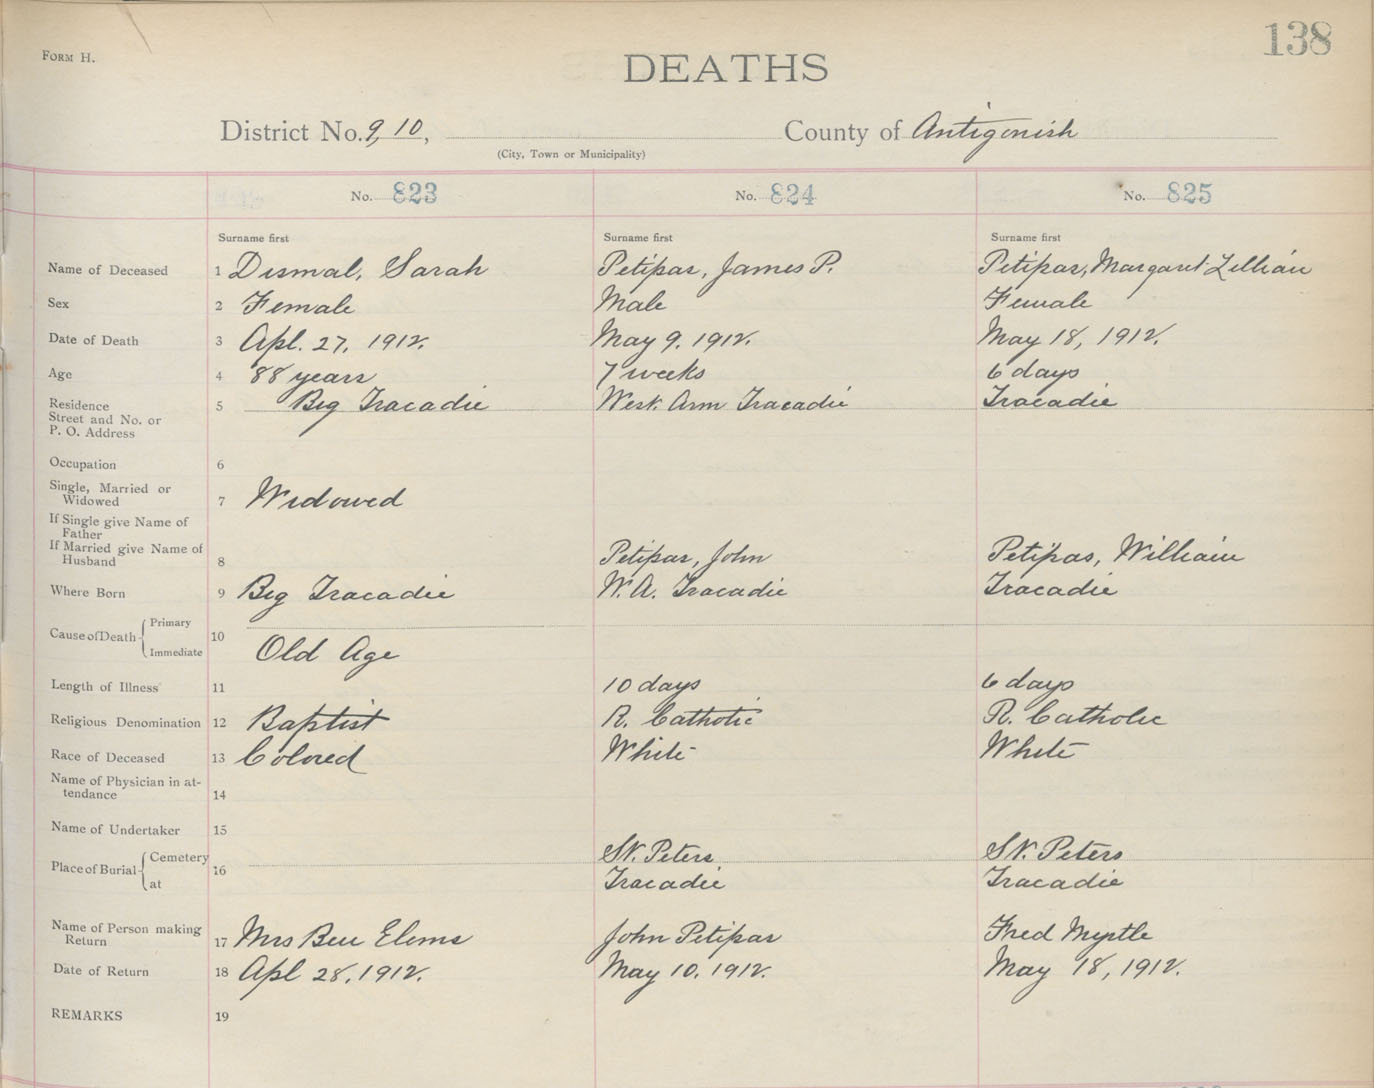 138
FORM H.
DEATHS
District No. 9, 10, County of Antigonish
(City, Town or Municipality)
No. 823 No. 824 No. 825
Surname first Surname first Surname first
Name of Deceased 1 Dismal, Sarah Petipas, James P. Petipas, Margaret Lillian
Sex 2 Female Male Female
Date of Death 3 Apl. 27, 1912. May 9, 1912. May 18, 1912.
Age 4 88 years 7 weeks 6 days
Residence
Street and No. or
P. O. Address 5 Big Tracadie West Arm Tracadie Tracadie
Occupation 6
Single, Married or
Widowed 7 Widowed
If Single give Name of
Father
If Married give Name of
Husband 8 Petipas, John Petipas, William
Where Born 9 Big Tracadie W. A. Tracadie Tracadie
Cause of Death Primary
Immediate 10 Old Age
Length of Illness 11 10 days 6 days
Religious Denomination 12 Baptist R. Catholic R. Catholic
Race of Deceased 13 Colored White White
Name of Physician in at-
tendance 14
Name of Undertaker 15
Place of Burial Cemetery 16 St. Peters St. Peters
at Tracadie Tracadie
Name of Person making
Return 17 Mrs Ben Elms John Petipas Fred Myrtle
Date of Return 18 Apl 28, 1912. May 10, 1912. May 18, 1912.
REMARKS 19